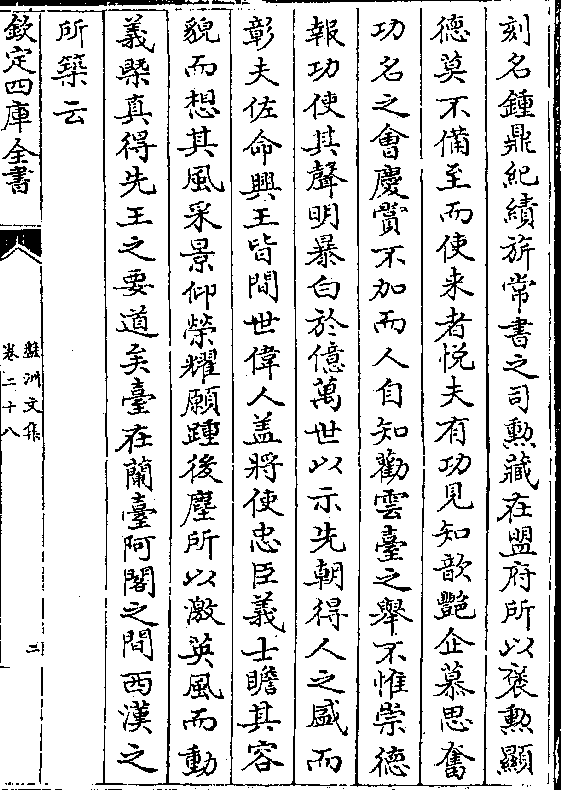 刻名鍾鼎紀績旂常書之司勲藏在盟府所以襃勲顯
德莫不備至而使来者悦夫有功見知歆豔企慕思奮
功名之會慶賞不加而人自知勸雲臺之舉不惟崇德
報功使其聲明暴白於億萬世以示先朝得人之盛而
彰夫佐命興王皆間世偉人盖將使忠臣義士瞻其容
貌而想其風采景仰榮耀願踵後塵所以激英風而動
義槩真得先王之要道矣臺在蘭臺阿閣之間西漢之
所築云
欽定四庫全書
盤洲文集
卷二十八
二